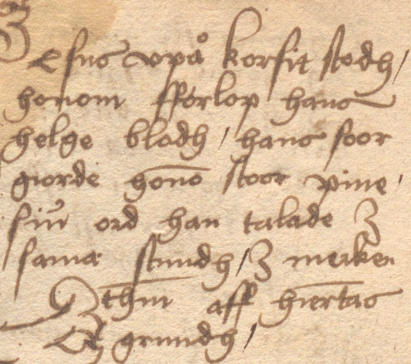 Jesus vpå korsit stodh /
honom fforlop hans
helge blodh / hans soor
giorde honō stoor pine /
siu ord han talade J
sama stundh / J merken
thm̄ aff hiertās
grundh /